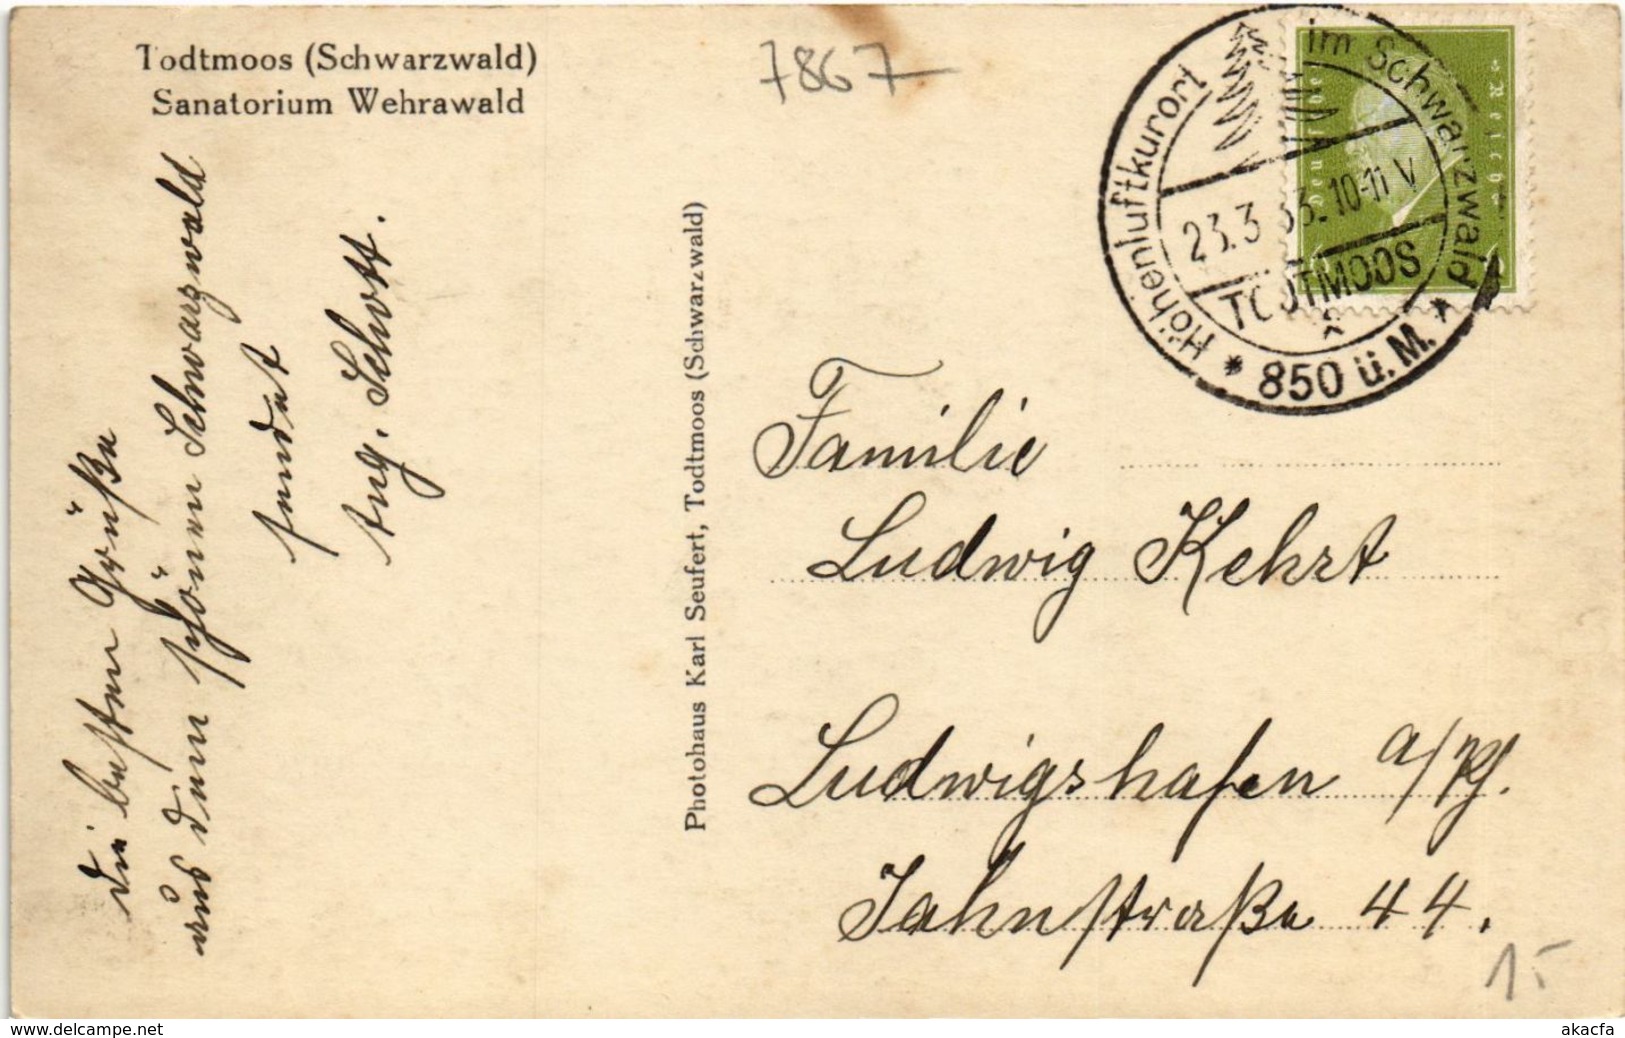 Todtmoos (Schwarzwald)
Sanatorium Wehrawald
7867
Höhenluftkurort im Schwarzwald
23.3.33.10-11 V
TODTMOOS
* 850 ü. M. *
Deutsches Reich
Die besten Grüße
aus dem schönen Schwarzwald
sendet
Aug. Schott.
Photohaus Karl Seufert, Todtmoos (Schwarzwald)
Familie
Ludwig Kehrt
Ludwigshafen a/Rh.
Jahnstraße 44.
15
delcampe.net
akacfa